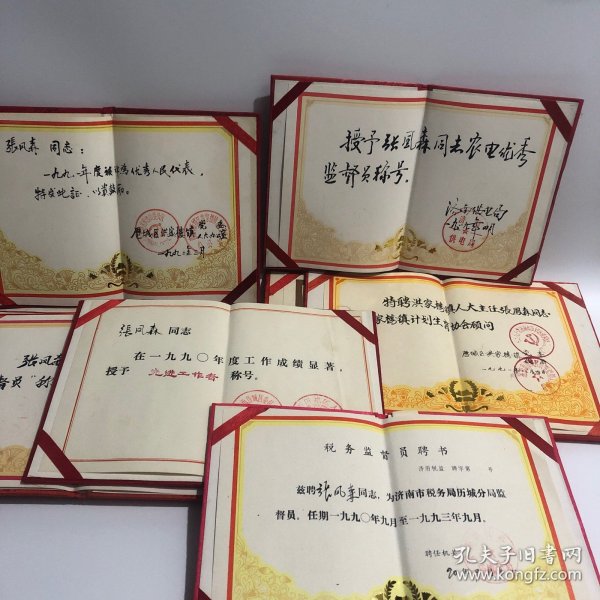 张凤森 同志：
一九九一年度被评为优秀人民代表，
特发此证，以资鼓励。
历城区洪家楼镇
党委
一九九二年三月
授予张凤森同志农电优秀
监督员称号。
济南供电局
特聘洪家楼镇人大主任张凤森同志
家楼镇计划生育协会顾问
历城区洪家楼镇
张凤森
张凤森 同志
在一九九〇年度工作成绩显著，
授予 先进工作者 称号。
税务监督员聘书
济历税监 聘字第 号
兹聘张凤森同志，为济南市税务局历城分局监
督员。任期一九九〇年九月至一九九三年九月。
聘任机
孔夫子旧书网
www.kongfz.com